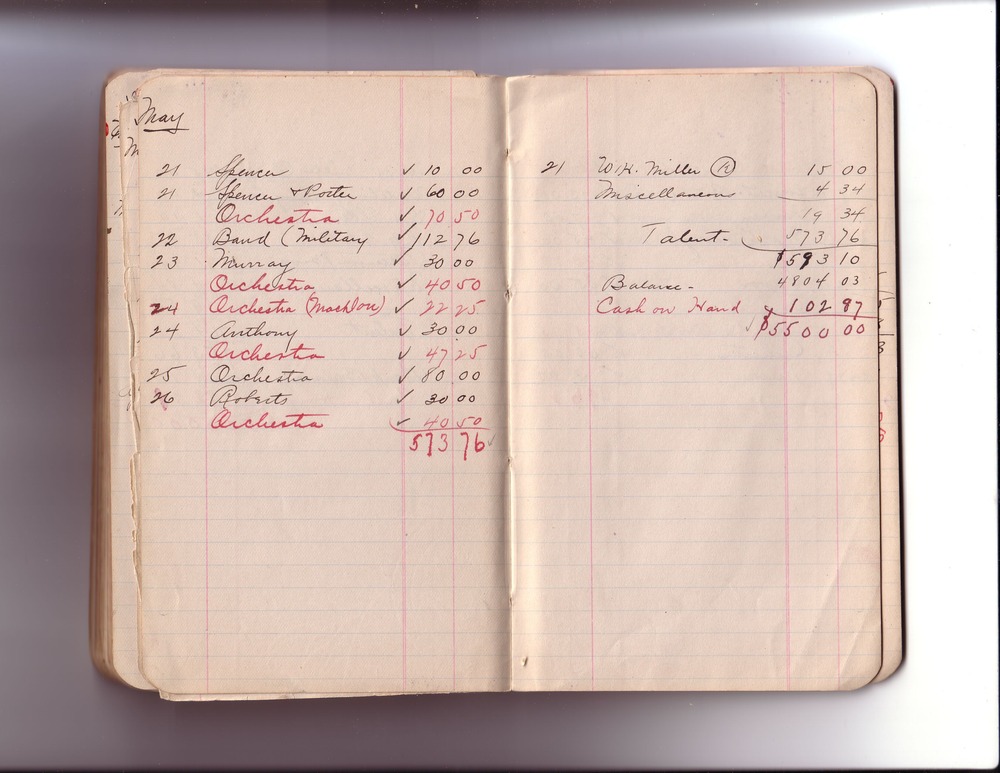 May
21 Spencer ✓ 10 00
21 Spencer & Porter ✓ 60 00
Orchestra ✓ 70 50
22 Band (Military ✓ 112 76
23 Murray ✓ 30 00
Orchestra ✓ 40 50
24 Orchestra ✓ 22 25
24 Anthony ✓ 30 00
Orchestra ✓ 47 25
25 Orchestra ✓ 80 00
26 Roberts ✓ 30 00
Orchestra ✓ 40 50
573 76 ✓
21 W.H. Miller 15 00
Miscellaneous 4 34
19 34
Talent - 573 76
$593 10
Balance - 4804 03
Cash on Hand 102 87
✓ $5500 00